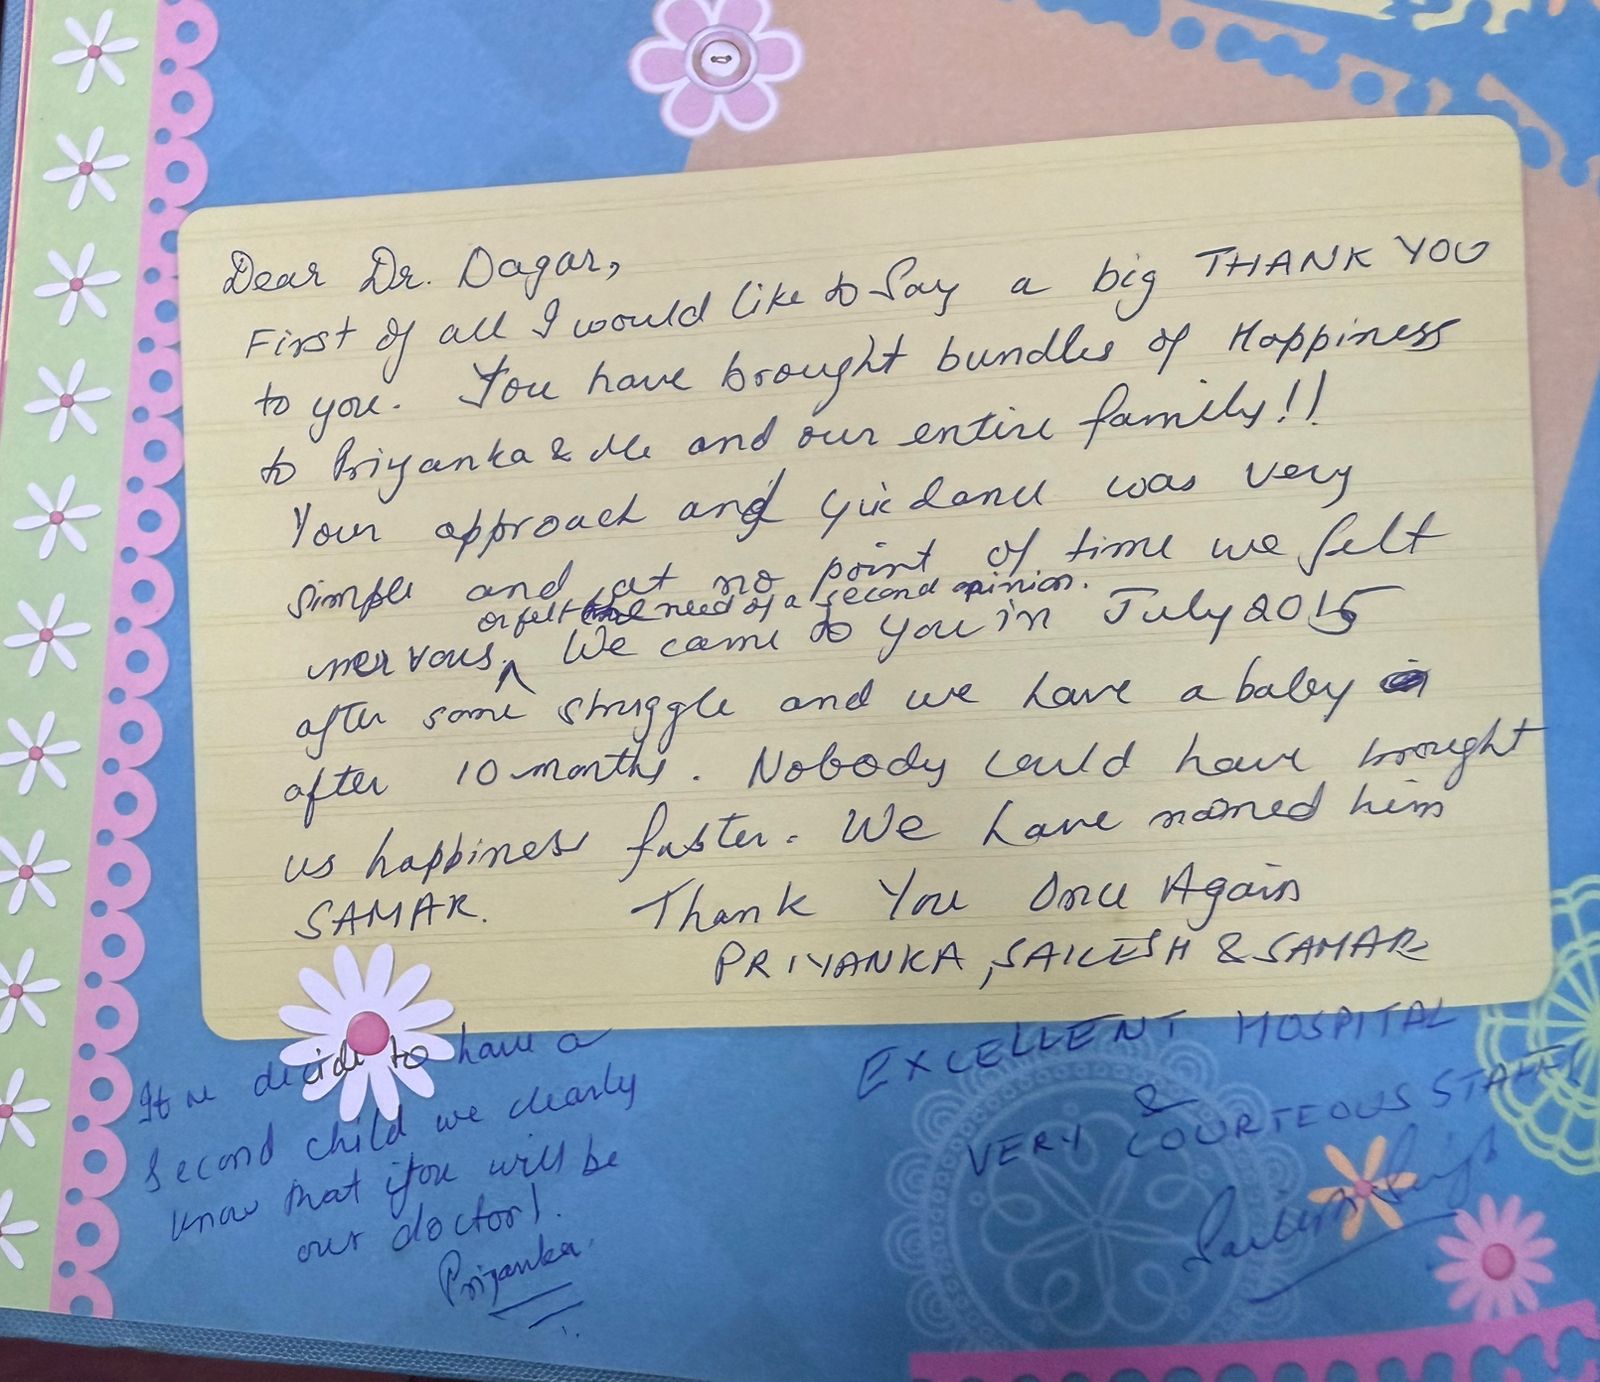 Dear Dr. Dagar,
First of all I would like to Say a big THANK YOU
to you. You have brought bundles of Happiness
to Priyanka & Me and our entire family!!
Your approach and guidance was very
simple and at no point of time we felt
or felt the need of a second opinion.
nervous. We came to you in July 2015
after some struggle and we have a baby
after 10 months. Nobody could have brought
us happiness faster. We have named him
SAMAR. Thank You Once Again
PRIYANKA, SAILESH & SAMAR
If we decide to have a
second child we clearly
know that you will be
our doctor!
Priyanka
EXCELLENT HOSPITAL
&
VERY COURTEOUS STAFF!